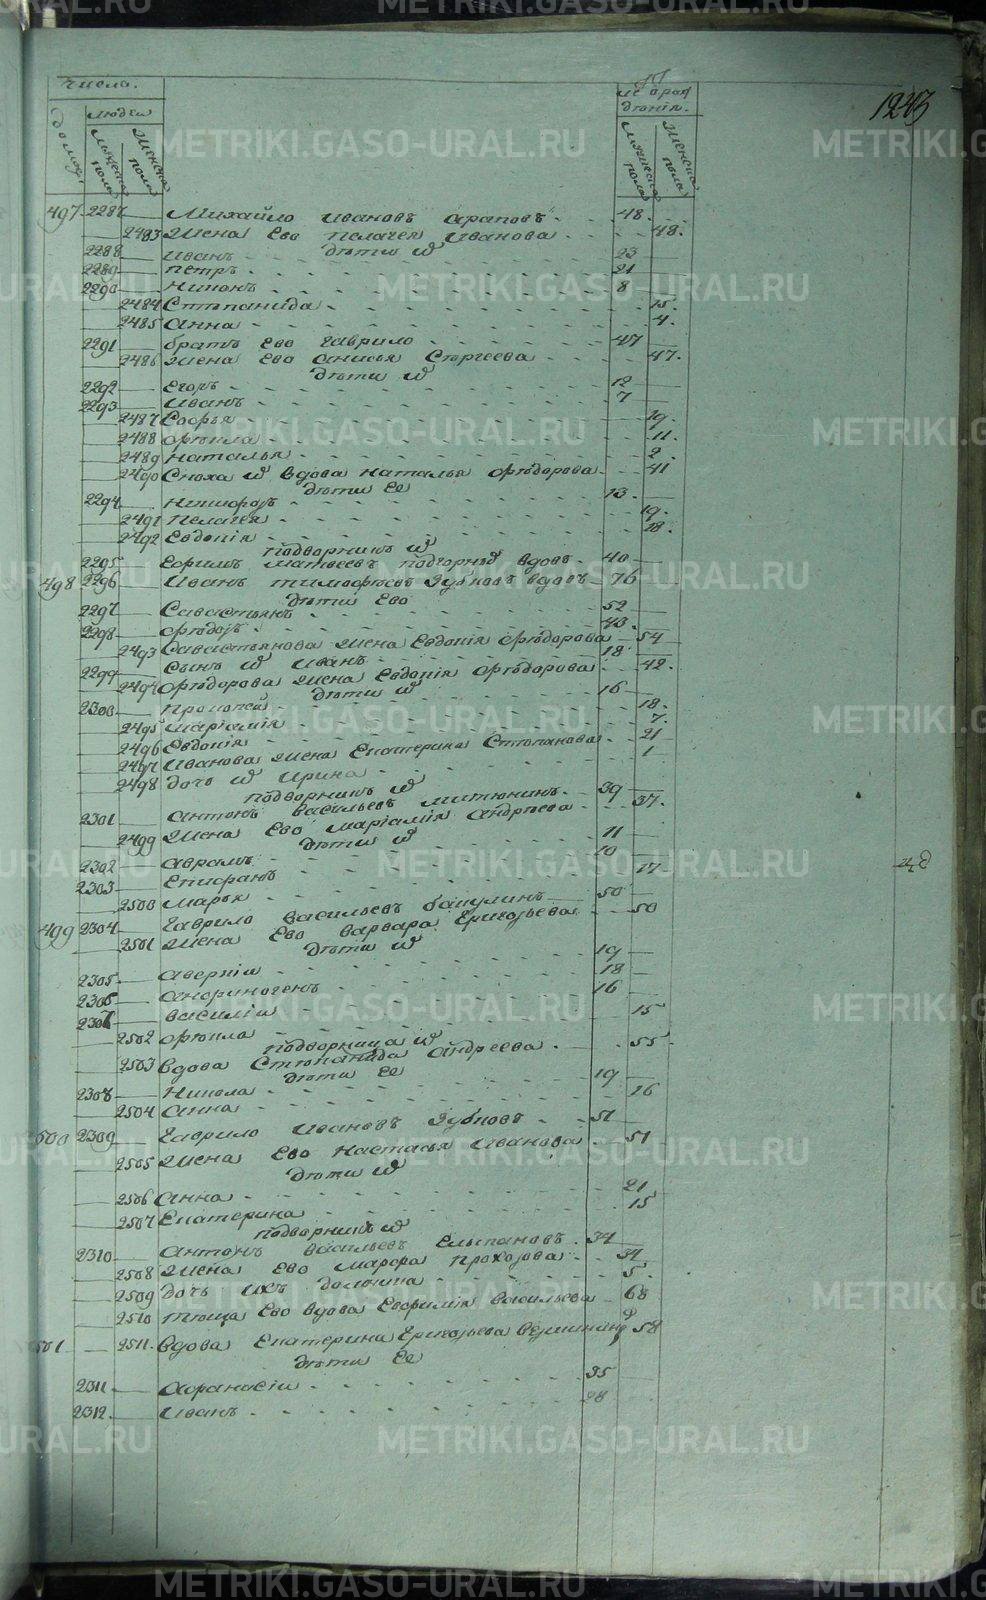 числа.
1243
домов,
людей
мужеска пола
женска пола
мужеска пола
женска пола
497 2287 Михайло Ивановъ Араповъ 48.
2483 Жена Ево Пелагея Иванова 48.
дѣти ихъ
2288 Иванъ 23
2289 Петръ 21
2290 Никонъ 8
2484 Стѣпанида 15.
2485 Анна 4.
2291 братъ Ево Гаврило 47
2486 жена Ево Анисья Сергѣева 47.
дѣти ихъ
2292 Егоръ 12
2293 Иванъ 7
2487 Софья 19.
2488 Фѣкла 11.
2489 Наталья 2.
2490 Сноха ихъ вдова Наталья Фѣдорова 41
дѣти Ее
2294 Никифоръ 13.
2491 Пелагея 19.
2492 Евдокія 18.
подворникъ ихъ
2295 Ефимъ Матвѣевъ вдовъ 40
498 2296 Иванъ Тимофѣевъ Зубковъ вдовъ 76
дѣти Ево
2297 Савастьянъ 52
2298 Фѣдоръ 43.
2493 Савастьянова жена Евдокія Фѣдорова 54
2299 Сынъ ихъ Иванъ 18
2494 Фѣдорова жена Евдокія Фѣдорова 42.
дѣти ихъ
2300 Прокопей 16
2495 Маріамія 18.
2496 Евдокія 7.
2497 Иванова жена Екатерина Стѣпанова 21
2498 дочь ихъ Ирина 1
подворникъ ихъ
2301 Антонъ Васильевъ Митюнинъ 39
2499 Жена Ево Маріамія Андрѣева 37.
дѣти ихъ
2302 Аврамъ 11
2303 Епифанъ 10
2500 Марья 17
499 2304 Гаврило Васильевъ Бакулинъ 50
2501 Жена Ево Варвара Григорьева 50
дѣти ихъ
2305 Аверкіи 19
2306 Анфиногенъ 18
2307 Василіи 16
2502 Фѣкла 15
подворница ихъ
2503 вдова Стѣпанида Андреева 55.
дѣти Ее
2308 Никола 19
2504 Анна 16
500 2309 Гаврило Ивановъ Зубковъ 51
2505 Жена Ево Настасья Иванова 51
дѣти ихъ
2506 Анна 21
2507 Екатерина 15
подворникъ ихъ
2310 Антонъ Васильевъ Елыпановъ 34
2508 Жена Ево Марфа Прохорова 34
2509 дочь ихъ Домнина 5.
2510 тѣща Ево вдова Евфимія Васильева 68
501 2511. Вдова Екатерина Григорьева 58
дѣти Ее
2311 Афанасіи 35
2312. Иванъ 28
METRIKI.GASO-URAL.RU